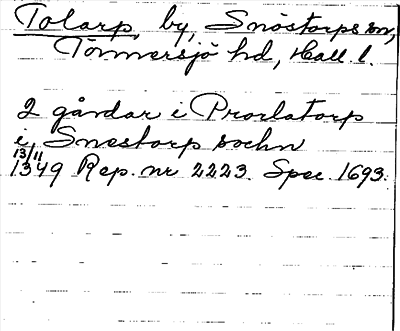 Tolarp, by, Snöstorps sn,
Tönnersjö hd, Hall. l.
2 gårdar i Prorlatorp
i Snestorp sochn
13/11
1349 Rep. nr 2223. Spec. 1693.